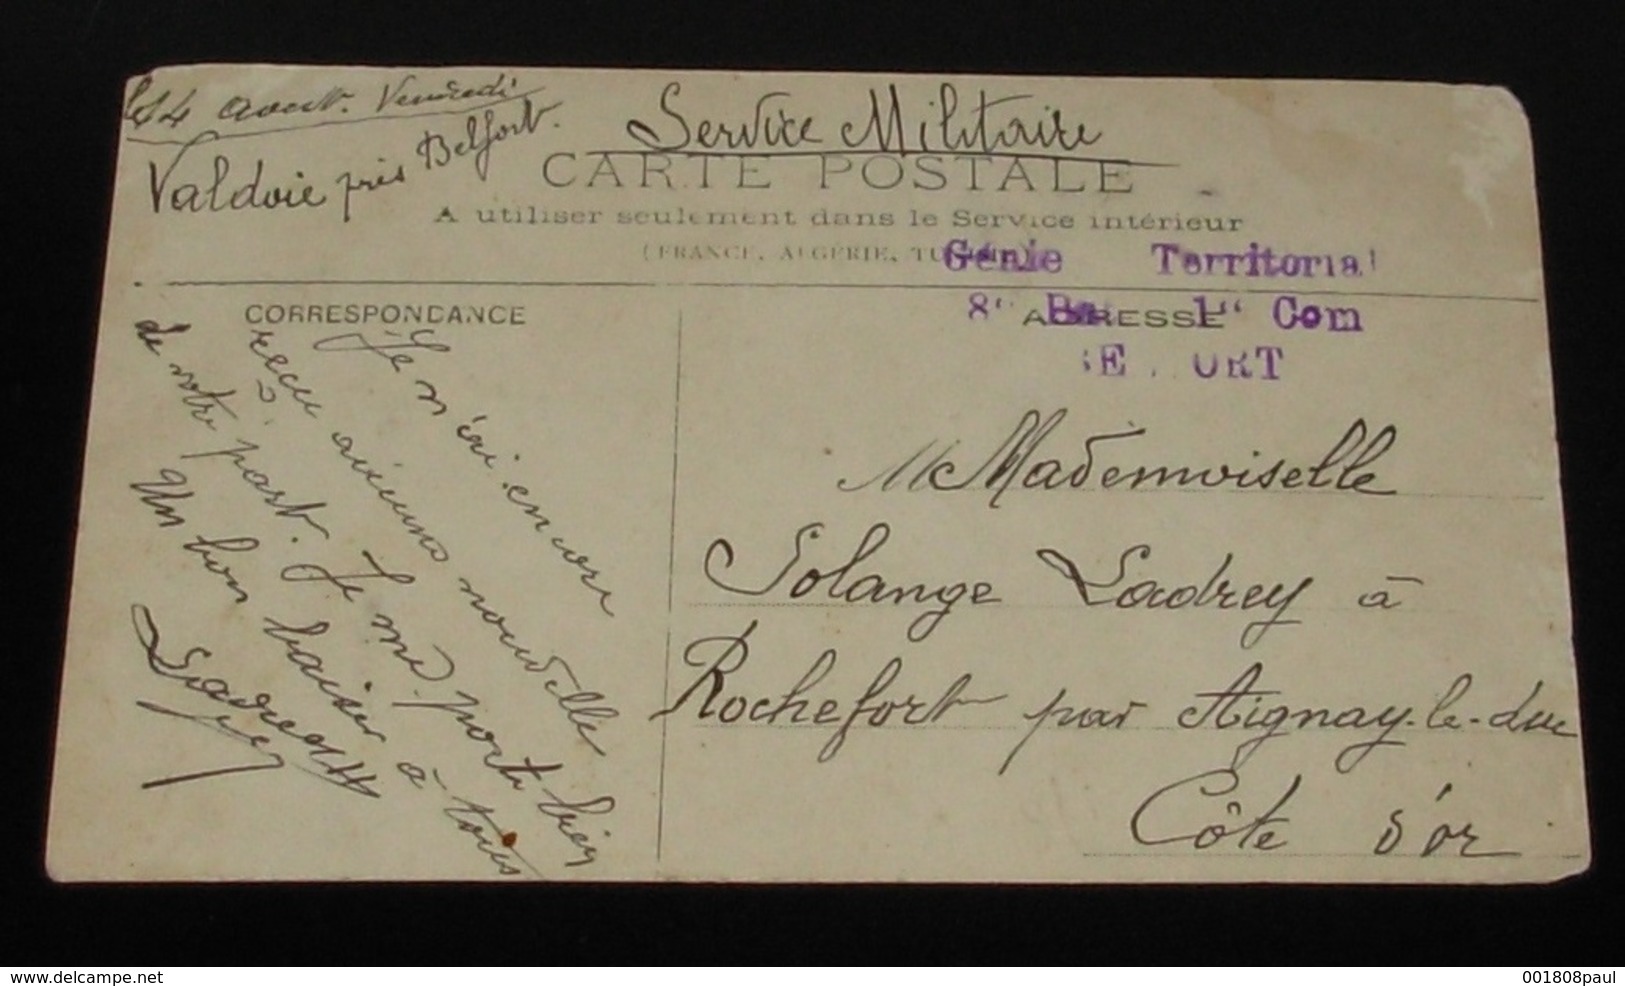 le 14 Aout. Vendredi
Valdoie près Belfort.
Service Militaire
CARTE POSTALE
A utiliser seulement dans le Service intérieur
(FRANCE, ALGÉRIE,
Génie Territorial
8e 1e Com
CORRESPONDANCE
ADRESSE
Je n'ai encore
reçu aucune nouvelle
de votre part. Je me porte bien
Un bon baiser à tous
Mademoiselle
Solange Ladrey à
Rochefort par Aignay-le-duc
Côte d'or
delcampe.net
001808paul